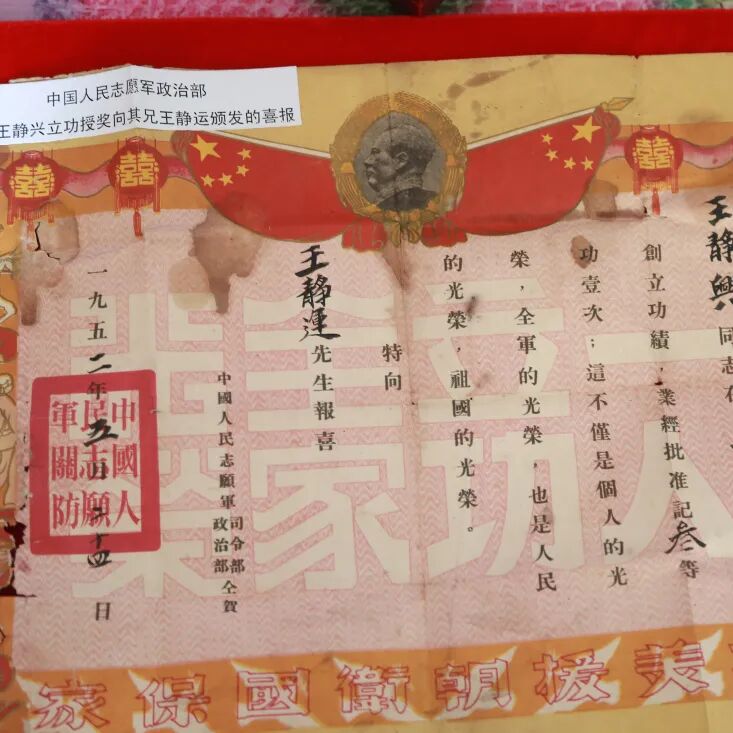 中国人民志愿军政治部
王静兴立功授奖向其兄王静运颁发的喜报
囍 囍 囍
王静興同志在
創立功績，業經批准記叁等
功壹次；這不僅是個人的光
榮，全軍的光榮，也是人民
的光榮，祖國的光榮。
特向
王静運先生報喜
中國人民志願軍司令部政治部仝賀
一九五二年五月二十四日
中國人
民志願
軍關防
人
立功
全家
光榮
美援朝衛國保家